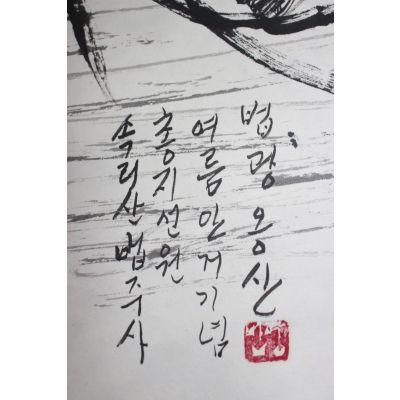 속리산법주사
총지선원
여름안거기념
법광 옹산